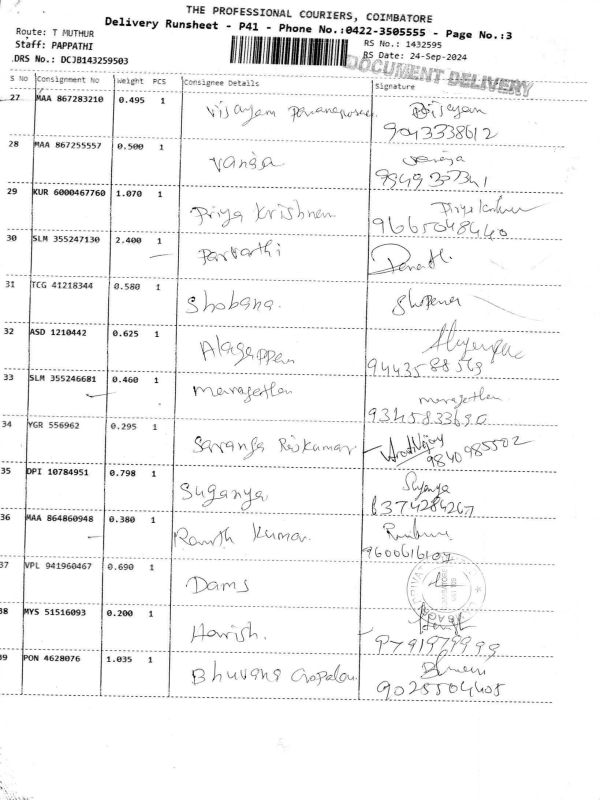 THE PROFESSIONAL COURIERS, COIMBATORE
Delivery Runsheet - P41 - Phone No.:0422-3505555 - Page No.:3
Route: T MUTHUR
Staff: PAPPATHI
RS No.: 1432595
DRS No.: DCJB143259503
RS Date: 24-Sep-2024
DOCUMENT DELIVERY
S No Consignment No Weight PCS Consignee Details Signature
27 MAA 867283210 0.495 1 Vijayam
9043338612
28 MAA 867255557 0.500 1 Vanaja
29 KUR 6000467760 1.070 1 Priya Krishnan
9665048440
30 SLM 355247130 2.400 1 Parvathi
31 TCG 41218344 0.580 1 Shobana.
32 ASD 1210442 0.625 1 Alagappan
9443588569
33 SLM 355246681 0.460 1 maragathan
34 YGR 556962 0.295 1 Saranga Ravikumar
9840985502
35 DPI 10784951 0.798 1 Suganya
6374284267
36 MAA 864860948 0.380 1 Kumar
37 VPL 941960467 0.690 1 Dams
38 MYS 51516093 0.200 1 Harish.
9791979999
39 PON 4628076 1.035 1 Bhuvana Gopalan
9025504405